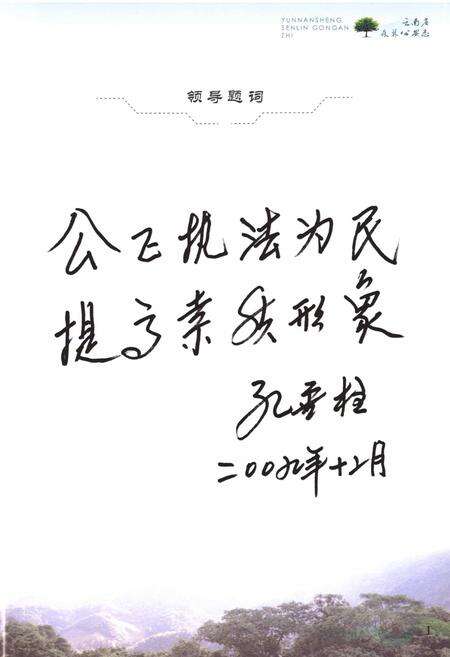 YUNNANSHENG
SENLIN GONGAN
ZHI
云南省
森林公安志
领导题词
公正执法为民
提高素质形象
孔垂柱
二〇〇九年十二月
1